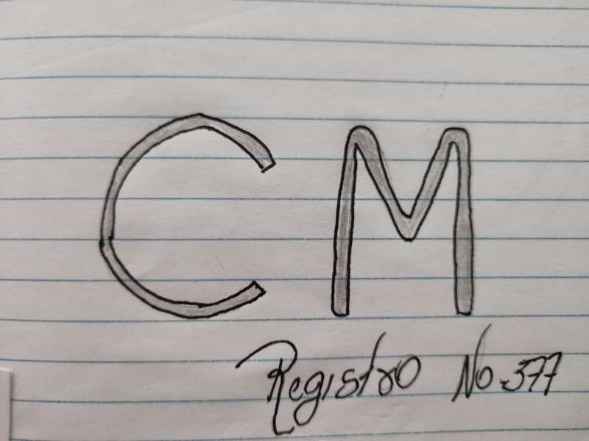 CM
Registro No.377